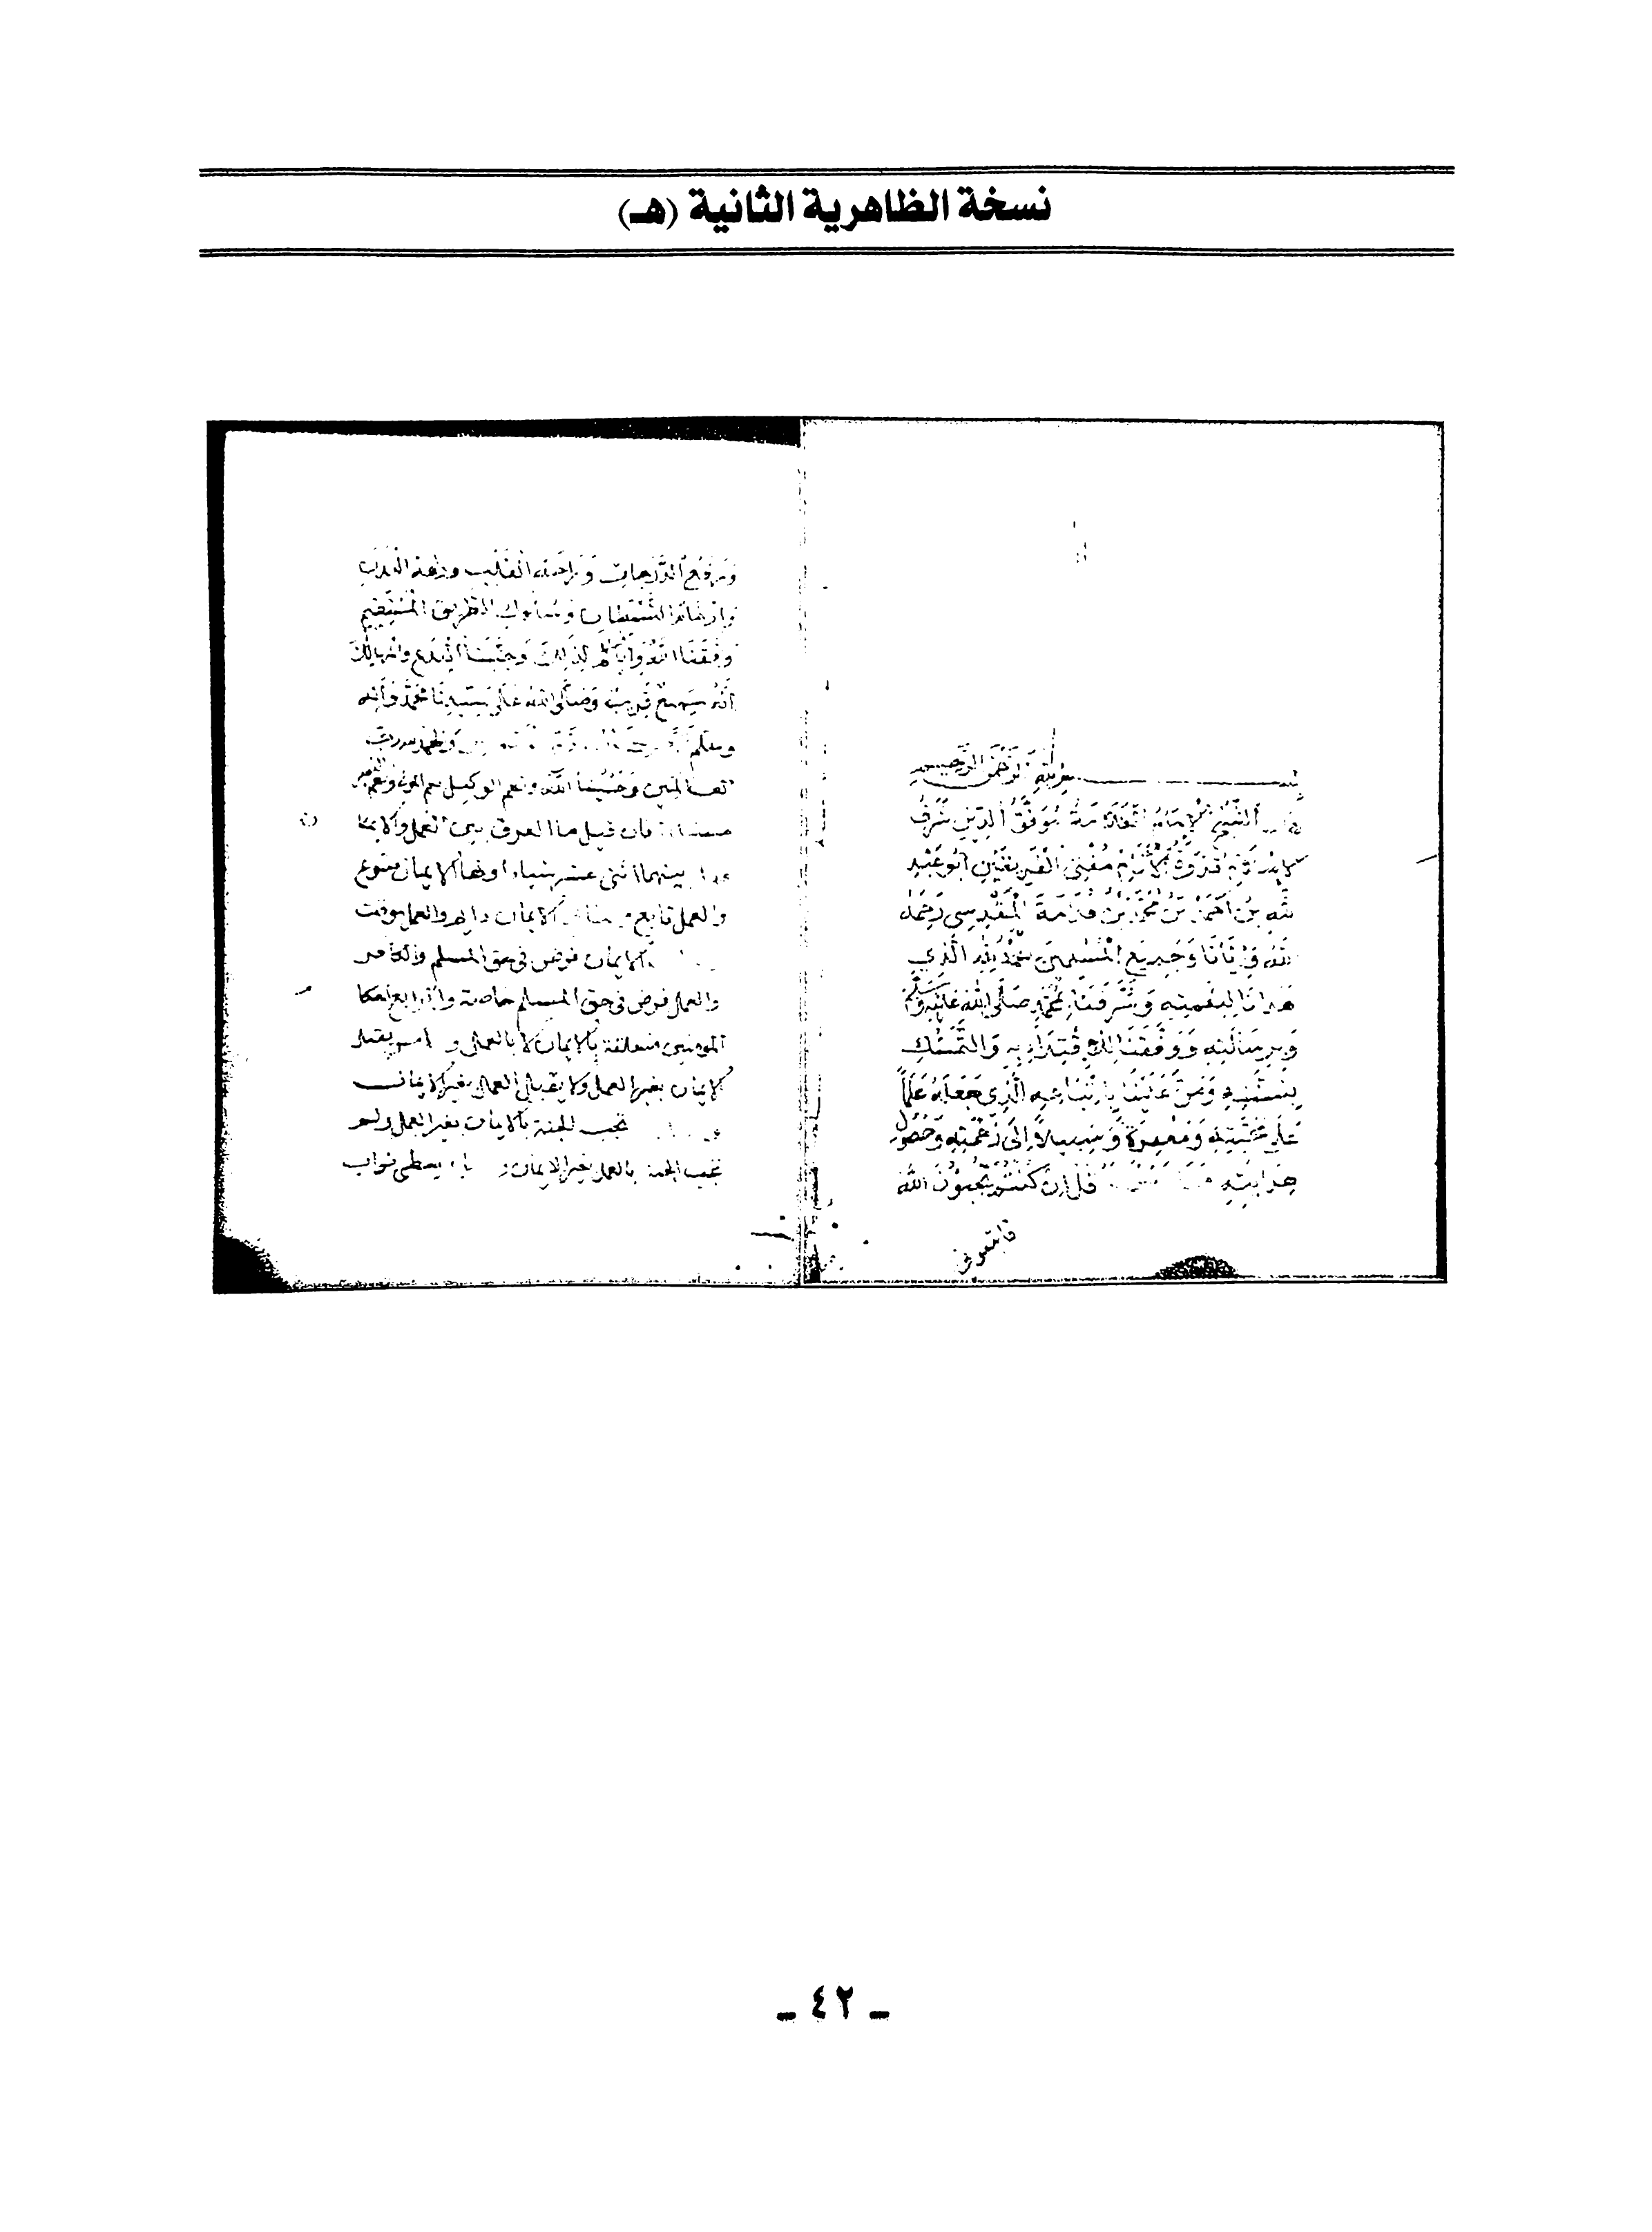 نسخة الظاهرية الثانية (هـ)
بسم الله الرحمن الرحيم
الشيخ الإمام العلامة موفق الدين شرف
قدوة الأنام مفتي الفريقين أبو عبد
الله بن أحمد بن محمد بن قدامة المقدسي رحمه
الله وإيانا وجميع المسلمين الحمد لله الذي
هدانا لنعمته وشرفنا بمحمد صلى الله عليه وسلم
وبرسالته ووفقنا للاقتداء به والتمسك
بسنته ومن علينا باتباعه الذي جعله علما
على محبته ومغفرة وسبيلا إلى رحمته وحصول
هدايته قل إن كنتم تحبون الله
فاتبعوني
ورفع الدرجات وراحة القلب ودعة البدن
وإرغام الشيطان وسلوك الطريق المستقيم
وفقنا الله وإياكم لذلك وجنبنا البدع والمهالك
أنه سميع قريب وصلى الله على سيدنا محمد وآله
وسلم والحمد لله رب
العالمين وحسبنا الله ونعم الوكيل نعم المولى ونعم النصير
مسئلة فان قيل ما الفرق بين العمل والايمان
بينهما اثنى عشر شياء اولها الايمان متبوع
والعمل تابع الايمان دايم والعمل موقت
الايمان فرض في حق المسلم والكافر
والعمل فرض في حق المسلم خاصة والرابع احكام
المومنين متعلقة بالايمان لا بالعمل يقبل
الايمان بغير العمل ولا يقبل العمل بغير الايمان
تجب الجنة بالايمان بغير العمل ولم
تجب الجنة بالعمل بغير الايمان يعطى ثواب
- ٤٢ -